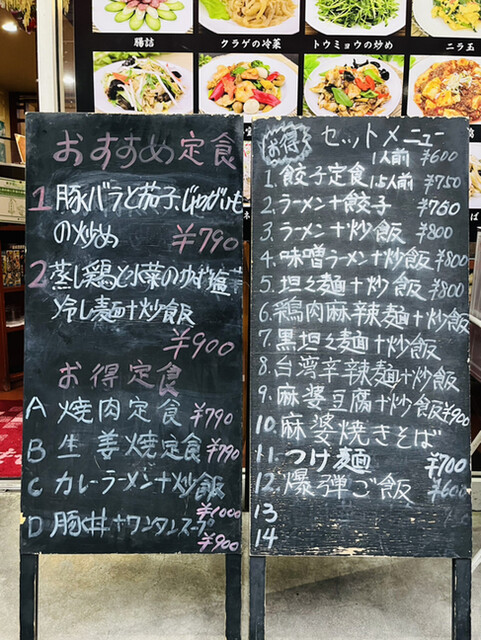 腸詰
クラゲの冷菜
トウミョウの炒め
ニラ玉
おすすめ定食
1 豚バラと茄子、じゃがいも
の炒め
¥790
2 蒸し鶏と小菜のゆず塩
冷し麺+炒飯
¥900
お得定食
A 焼肉定食 ¥790
B 生姜焼定食 ¥790
C カレーラーメン+炒飯
¥1000
D 豚丼+ワンタンスープ
¥900
お得 セットメニュー
1人前 ¥600
1. 餃子定食 1.5人前 ¥750
2. ラーメン+餃子 ¥760
3. ラーメン+炒飯 ¥800
4. 味噌ラーメン+炒飯 ¥800
5. 坦々麺+炒飯 ¥800
6. 鶏肉麻辣麺+炒飯
7. 黒坦々麺+炒飯
8. 台湾辛辣麺+炒飯
9. 麻婆豆腐+炒飯 ¥900
10. 麻婆焼きそば
11. つけ麺 ¥700
12. 爆弾ご飯 ¥600
13
14